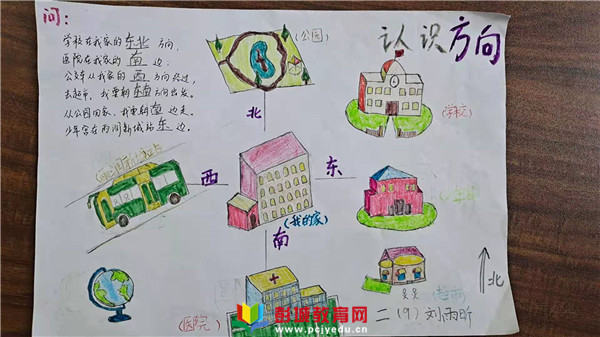 问:
学校在我家的东北方向,
医院在我家的南边.
公交车从我家的西方向经过,
去超市,我要朝东南方向出发.
从公园回家,我要朝南边走.
少年宫在两间新城站东边.
认识方向
(公园)
(学校)
北
西
东
南
(我的家)
(医院)
北
二(9)刘雨昕
彭城教育网
www.pcjyedu.cn